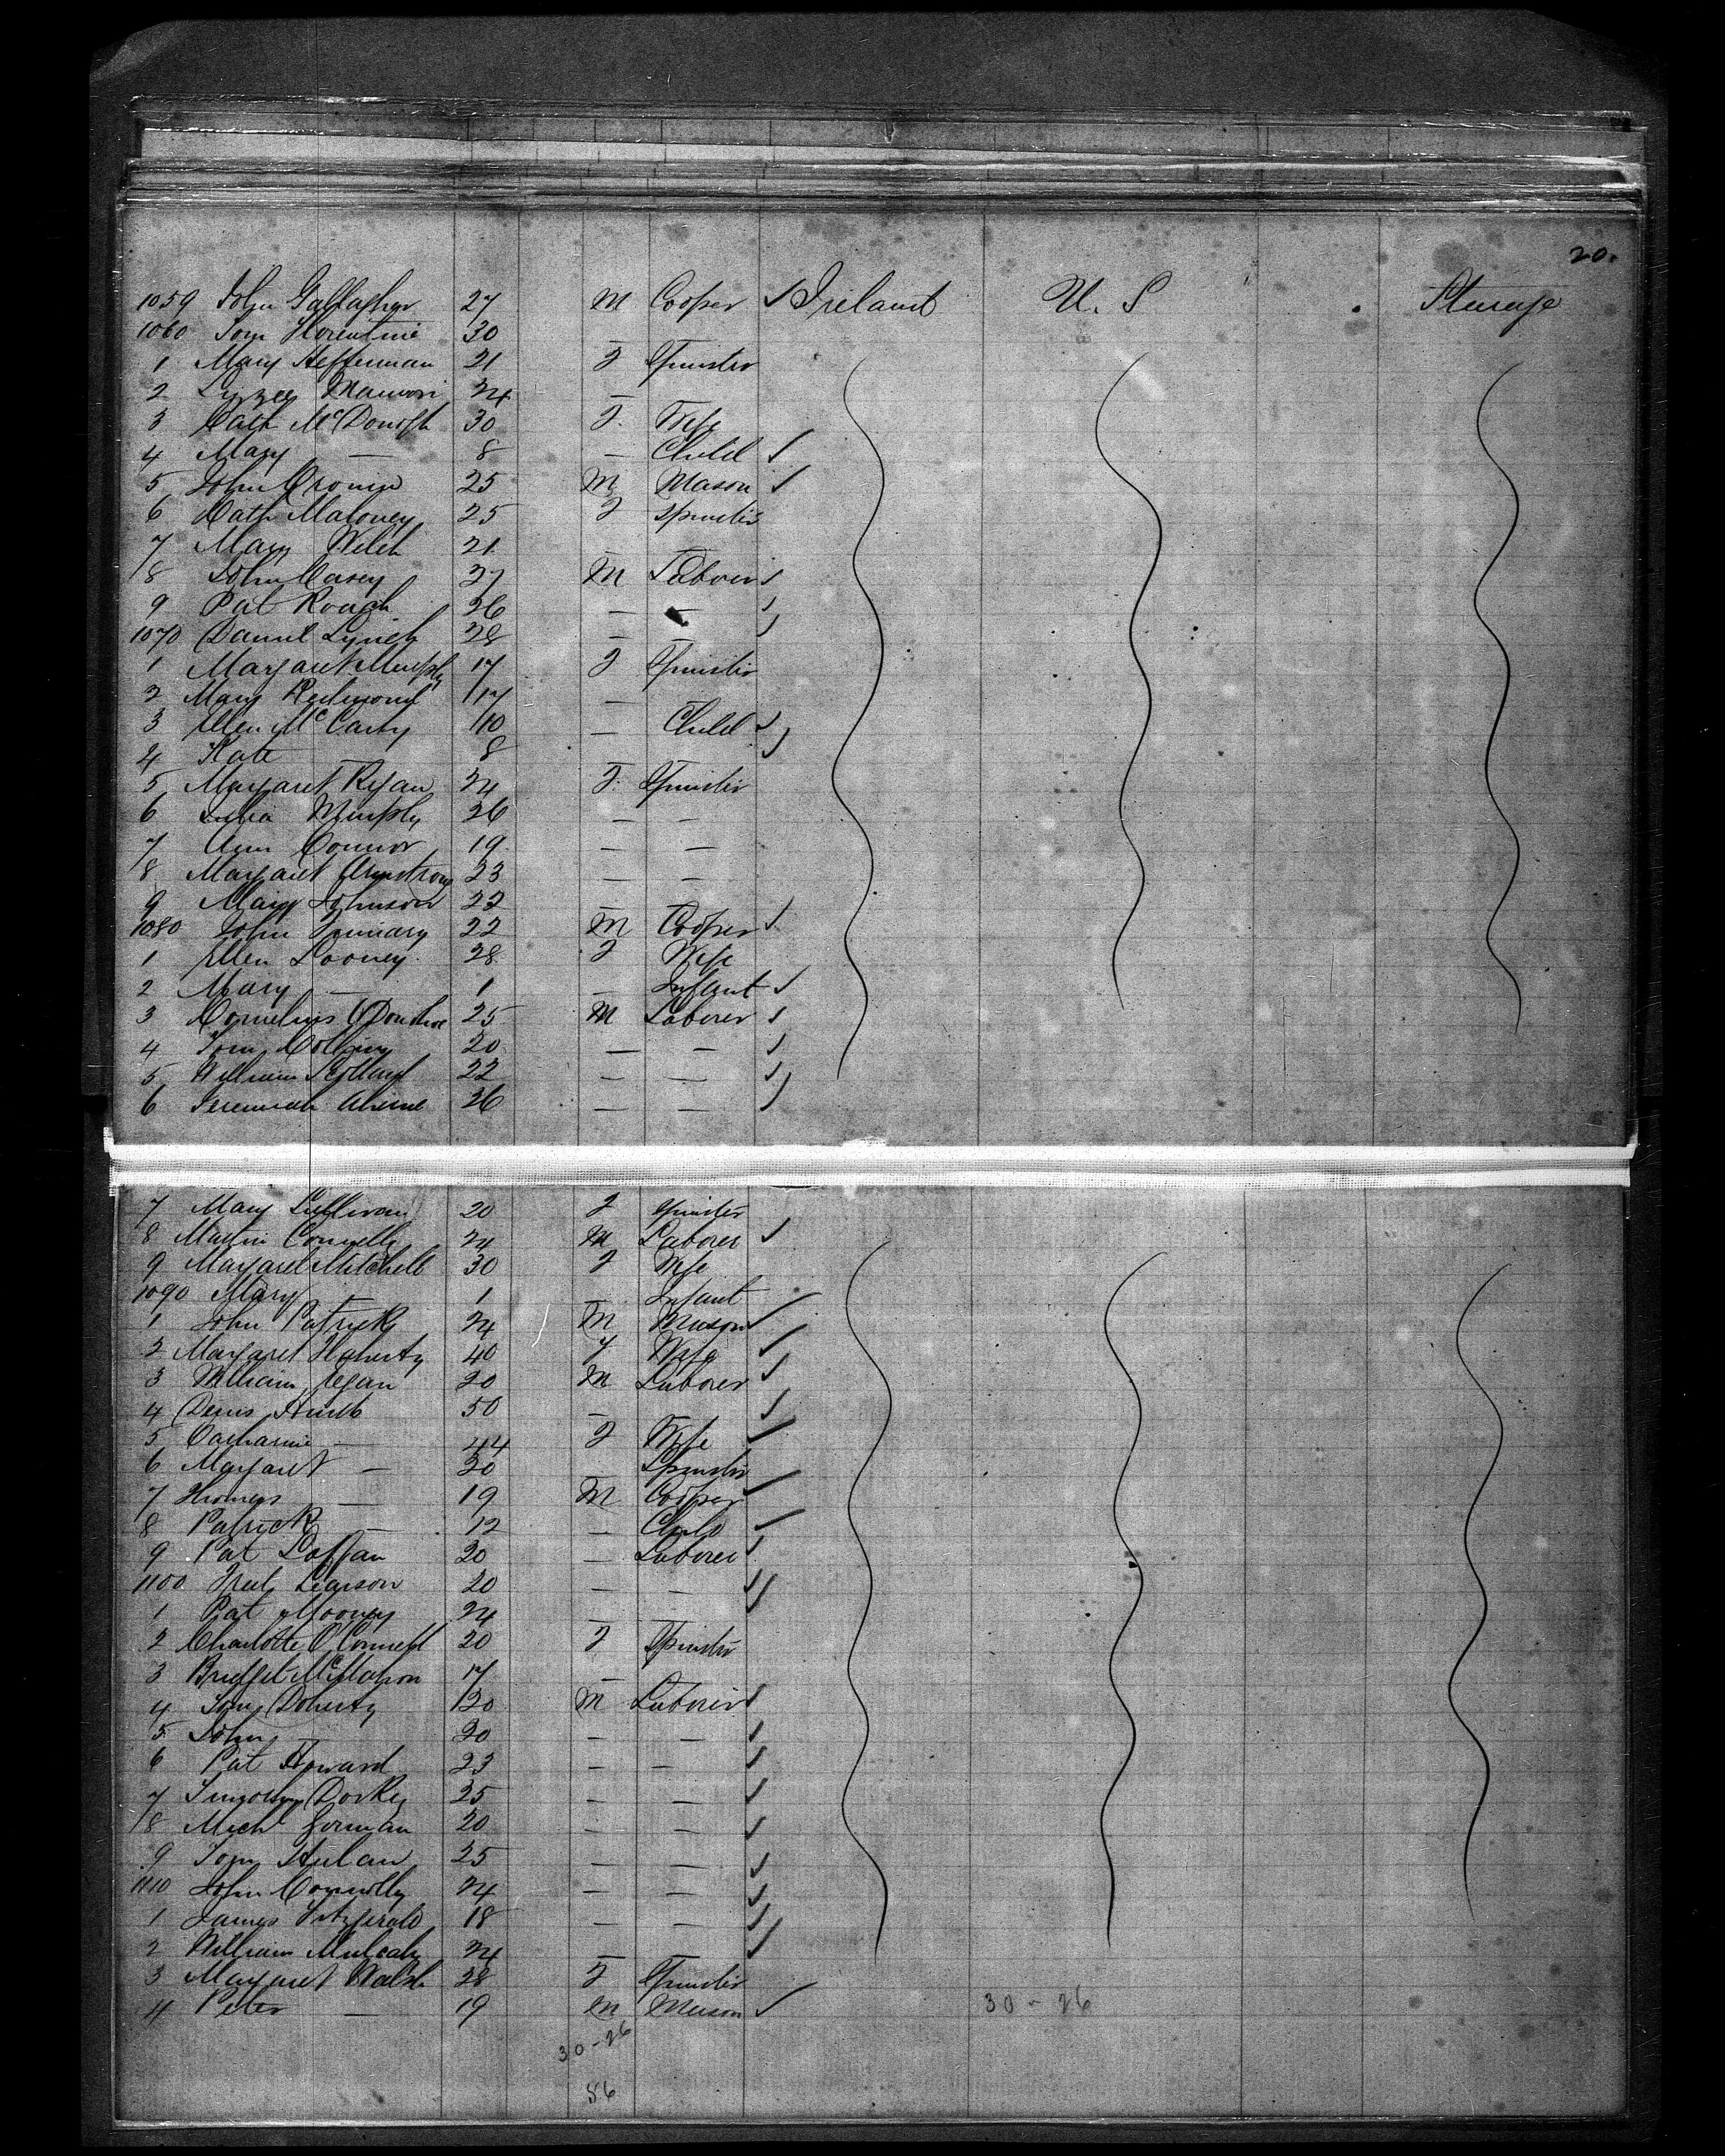 20.
1059 John Gallagher 27 M Cooper Ireland U. S Steerage
1060 Tom 30
1 Mary Heffernan 21 F Spinster
2 Lizzee 24 —
3 Cath McDonogh 30 F. Wife
4 Mary — 8 — Child
5 John Cronin 25 M Mason
6 Cath Maloney 25 F Spinster
7 Mary Welch 21 —
8 John Casey 27 M Laborer
9 Pat Roach 26 — —
1070 Daniel Lynch 28 — —
1 Margaret Murphy 17 F Spinster
2 Mary Redmond 17 —
3 Ellen McCarty 10 — Child
4 Kate — 8 —
5 Margaret Ryan 24 F. Spinster
6 Julia Murphy 26 — —
7 Ann Connor 19 — —
8 Margaret Armstrong 23 — —
9 Mary Johnson 22 —
1080 John 22 M Cooper
1 Ellen Looney 28 F Wife
2 Mary — 1 — Infant
3 Cornelius O'Donohoe 25 M Laborer
4 Tom Collins 20 — —
5 William 22 — —
6 Jeremiah Aherne 26 — —
7 Mary Sullivan 20 F Spinster
8 Martin Connelly 24 M Laborer
9 Margaret Mitchell 30 F Wife
1090 Mary — 1 — Infant
1 John Patrick 24 M Mason
2 Margaret Flaherty 40 F Wife
3 William Regan 20 M Laborer
4 Denis 50 —
5 Catharine — 44 F Wife
6 Margaret — 20 Spinster
7 Thomas — 19 M Cooper
8 Patrick — 12 — Child
9 Pat Laffan 20 — Laborer
1100 Pearson 20 — —
1 Pat Mooney 24 — —
2 Charlotte O'Connell 20 F Spinster
3 Bridget McMahon 17 —
4 Tom Doherty 20 M Laborer
5 John — 20 — —
6 Pat Howard 23 — —
7 Timothy 25 — —
8 Mich Gorman 20 — —
9 Tom 25 — —
1110 John Connolly 24 — —
1 James Fitzgerald 18 — —
2 William Mulcahy 24 —
3 Margaret Walsh 28 F Spinster
4 Peter — 19 M Mason
30 - 26
30 - 26
56